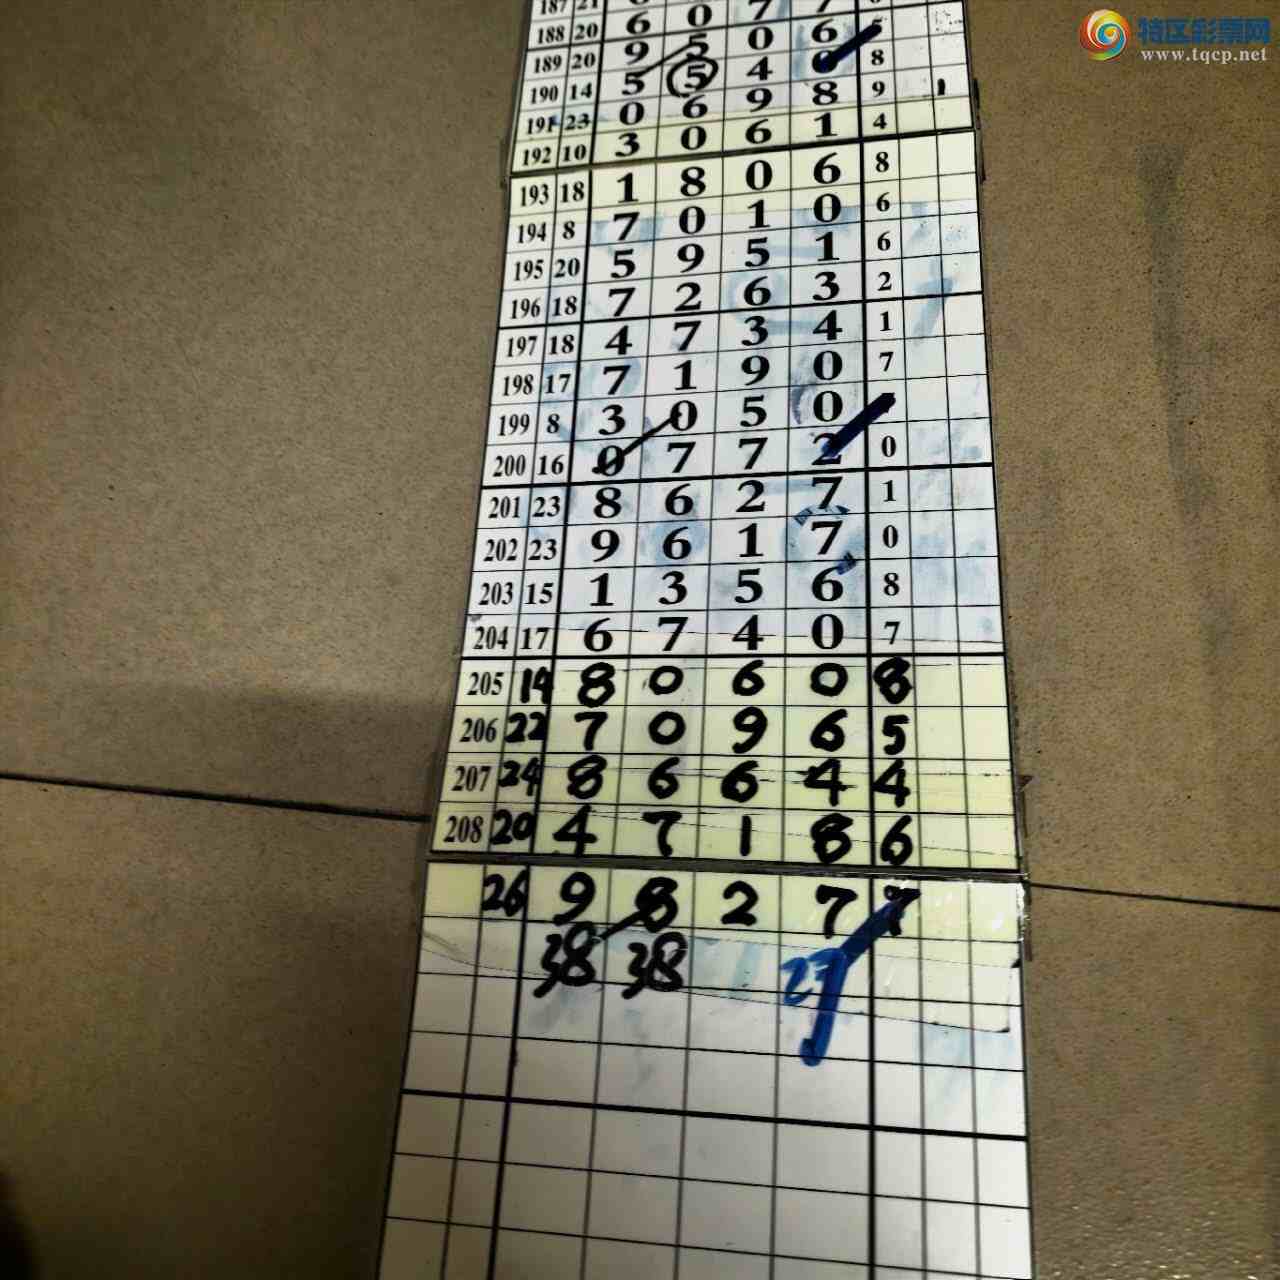 特区彩票网
www.tqcp.net
187 21
188 20 6 0 7 7
189 20 9 5 0 6 5
190 14 5 5 4 0 8
191 23 0 6 9 8 9
192 10 3 0 6 1 4
193 18 1 8 0 6 8
194 8 7 0 1 0 6
195 20 5 9 5 1 6
196 18 7 2 6 3 2
197 18 4 7 3 4 1
198 17 7 1 9 0 7
199 8 3 0 5 0
200 16 0 7 7 2 0
201 23 8 6 2 7 1
202 23 9 6 1 7 0
203 15 1 3 5 6 8
204 17 6 7 4 0 7
205 14 8 0 6 0 8
206 22 7 0 9 6 5
207 24 8 6 6 4 4
208 20 4 7 1 8 6
26 9 8 2 7 7
38 38 27